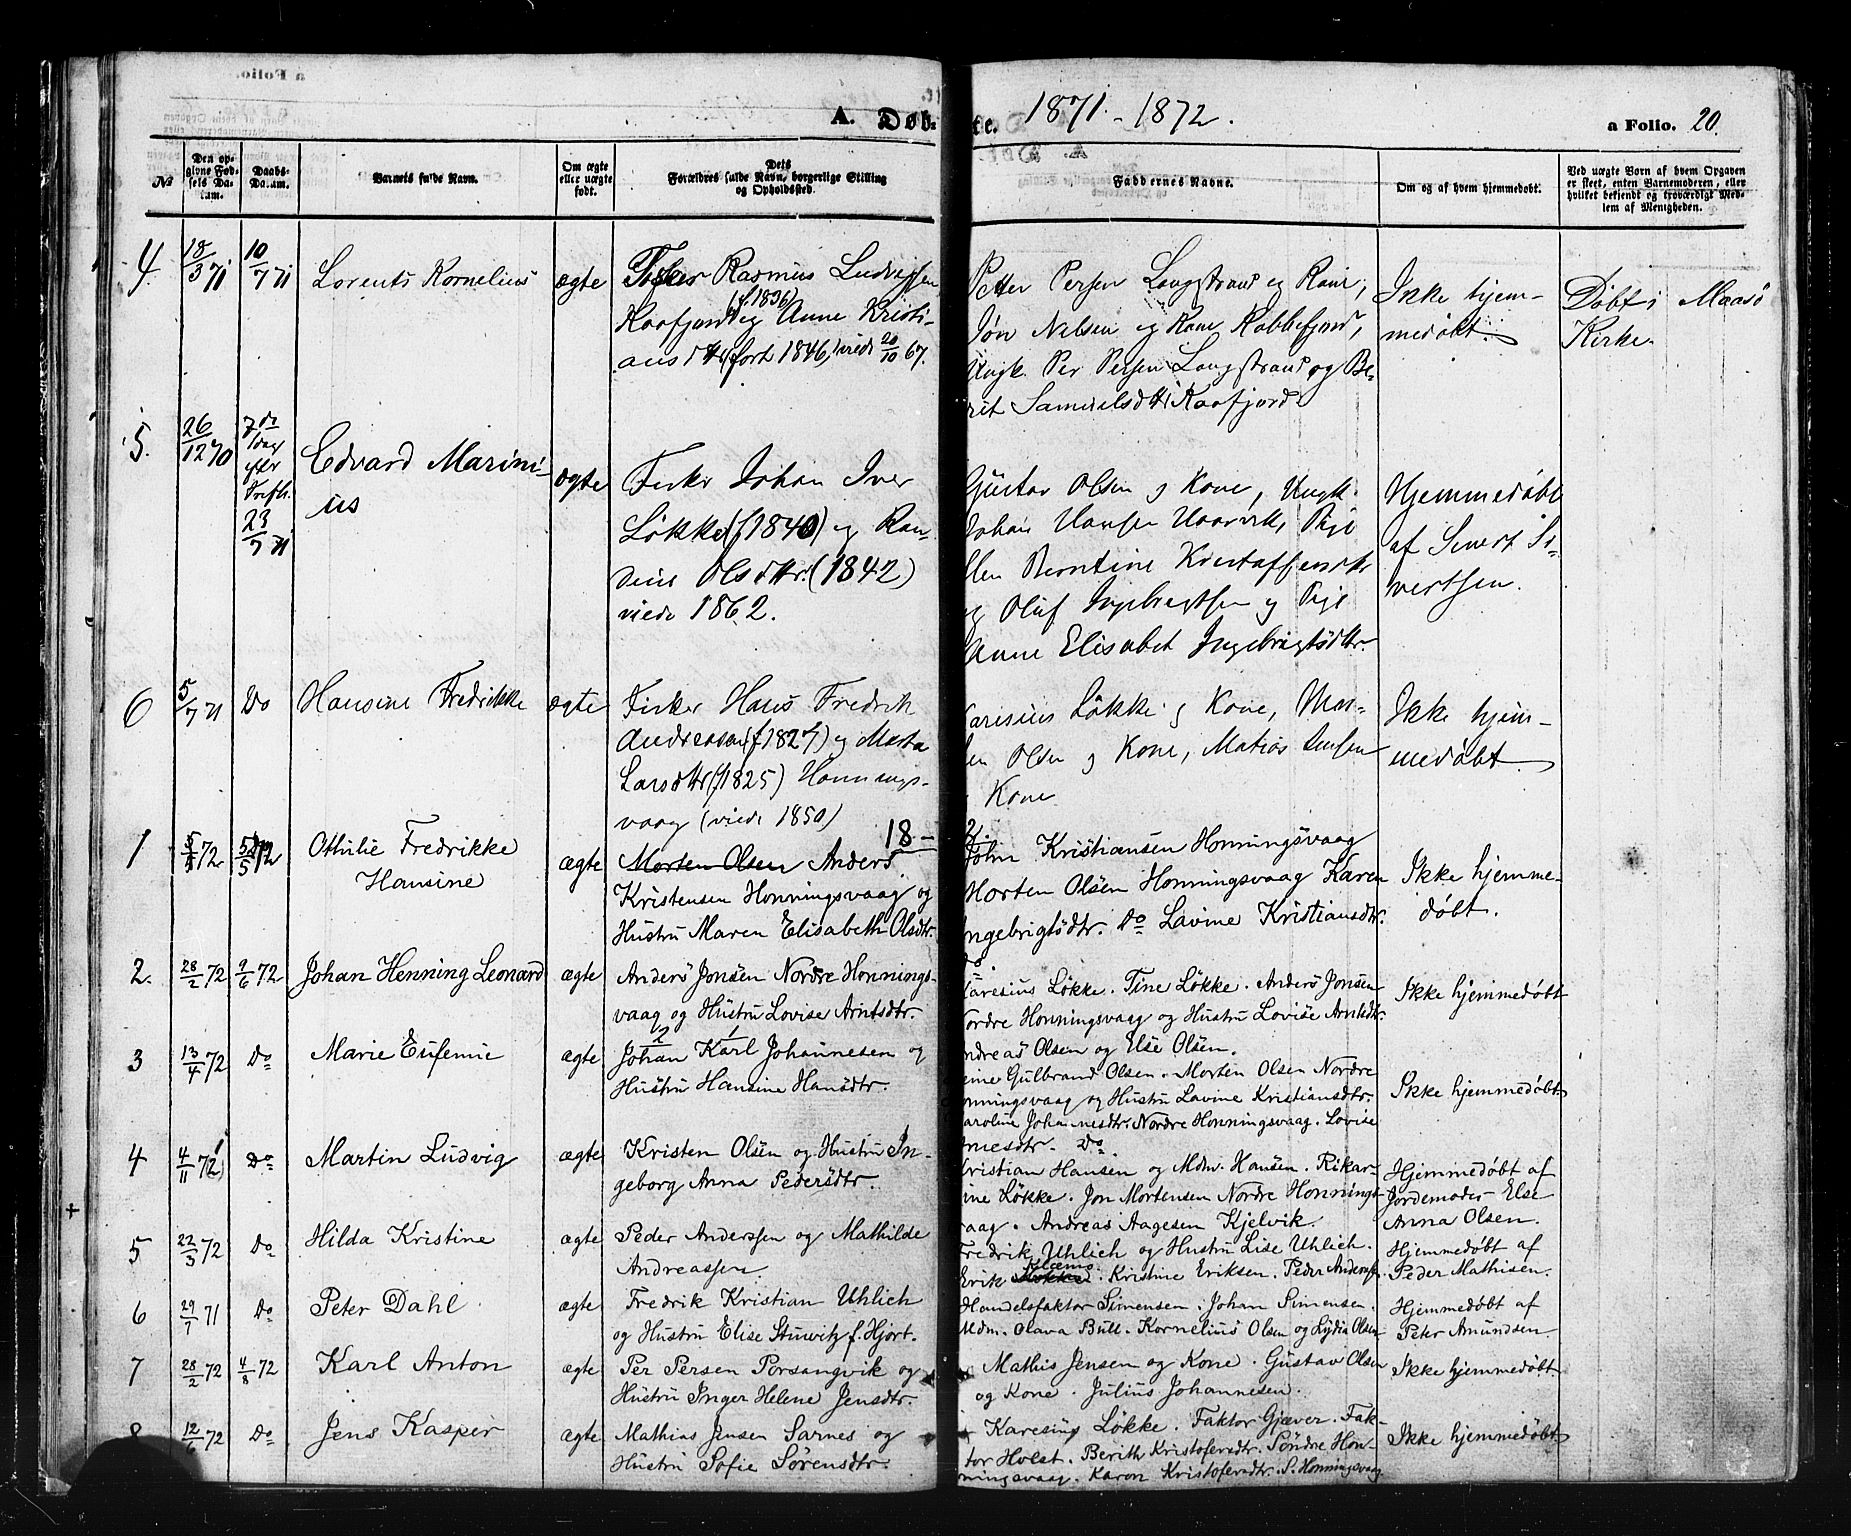 A. Døb-te. 1871 - 1872.
a Folio. 20.
№
Den op-
givne Fød-
sels Da-
tum.
Daabs-
Datum.
Barnets fulde Navn.
Om ægte
eller uægte
født.
Dets
Forældres fulde Navn, borgerlige Stilling
og Opholdssted.
Faddernes Navne.
Om og af hvem hjemmedøbt.
Ved uægte Børn af hvem Opgaven
er skeet, enten Barnemoderen, eller
hvilket bekjendt og troværdigt Med-
lem af Menigheden.
4. 18/3 71 10/7 71 Lorents Kornelius ægte
Fisker Rasmus Ludvigsen
(f. 1836)
Kaafjord og Anne Kristi-
ansdtr (født 1846) viede 20/10 67.
Petter Persen Langstrand og Kone,
Jøn Nilsen og Kone Kobbefjord,
Ungk. Per Persen Langstrand og Be-
rit Samuelsdtr Kaafjord
Ikke hjem-
medøbt.
Døbt i Maasø
Kirke.
5. 26/12 70
7de
Søndag
efter
Trefh.
23/7 71
Edvard Marini-
us
ægte
Fisker Johan Iver
Løkke (f 1840) og Ran-
dine Olsdttr. (1842)
viede 1862.
Gustav Olsen og Kone, Ungk.
Johan Hansen, Pige
Elen Berntine Kristoffersdtr
og Oluf Ingebrigtsen og Pige
Anne Elisabet Ingebrigtsdtr.
Hjemmedøbt
af Sivert Si-
vertsen.
6 5/7 71 Do Hansine Fredrikke ægte
Fisker Hans Fredrik
Andreasen (f 1827) og Marta
Larsdtr (f 1825) Honnings-
vaag (viede 1850)
Karesius Løkke og Kone, Mor-
ten Olsen og Kone, Matias Jensen
Kone
Ikke hjem-
medøbt.
18-72.
1 5/1 72 5/5 72 Othilie Fredrikke
Hansine
ægte
Morten Olsen Anders
Kristensen Honningsvaag og
Hustru Maren Elisabeth Olsdtr.
John Kristiansen Honningsvaag
Morten Olsen Honningsvaag Karen
Ingebrigtsdtr. Do Lavine Kristiansdtr.
Do
Ikke hjemme-
døbt.
2. 28/2 72 9/6 72 Johan Henning Leonard ægte
Anders Jonsen Nordre Honnings-
vaag og Hustru Lovise Arntsdtr.
Karesius Løkke. Tine Løkke. Anders Jonsen
Nordre Honningsvaag og Hustru Lovise Arntsdtr.
Andreas Olsen og Else Olsen.
Ikke hjemmedøbt
3 13/4 72 Do Marie Eufemie ægte
2 1
Johan Karl Johannesen og
Hustru Hansine Hansdtr.
Gulbrand Olsen. Morten Olsen Nordre
Honningsvaag og Hustru Lavine Kristiansdtr.
Karoline Johannesdtr. Nordre Honningsvaag. Lovise
Do.
Ikke hjemmedøbt.
4 4/11 72 Do Martin Ludvig ægte
Kristen Olsen og Hustru In-
geborg Anna Pedersdtr.
Kristian Hansen og Mdm. Hansen. Rikar-
dine Løkke. Jon Mortensen Nordre Honnings-
vaag. Andreas Aagesen Kjelvik.
Hjemmedøbt af
Jordemoder Else
Anna Olsen.
5 22/3 72 Do Hilda Kristine ægte
Peder Anderssen og Mathilde
Andreassen.
Fredrik Uhlich og Hustru Lise Uhlich.
Erik Løkke. Kristine Eriksen. Peder Anderss.
Hjemmedøbt af
Peder Mathisen.
6 29/7 71 Do Peter Dahl. ægte
Fredrik Kristian Uhlich
og Hustru Elise Stuwitz f. Hjort.
Handelsfaktor Simensen. Johan Simensen.
Mdm. Olava Bull. Kornelius Olsen og Lydia Olsen
Hjemmedøbt af
Peter Amundsen.
7 28/2 72 4/8 72 Karl Anton ægte
Per Persen Porsangvik og
Hustru Inger Helene Jensdtr.
Mathis Jensen og Kone. Gustav Olsen
og Kone. Julius Johannesen.
Ikke hjemmedøbt.
8 12/6 72 Do Jens Kasper ægte
Mathias Jensen Sarnes og
Hustru Sofie Sørensdtr.
Karesius Løkke. Faktor Gjæver. Fak-
tor Holst. Berith Kristofersdtr. Søndre Hon-
ningsvaag. Karen Kristofersdtr. S. Honningsvaag
Ikke hjemmedøbt.